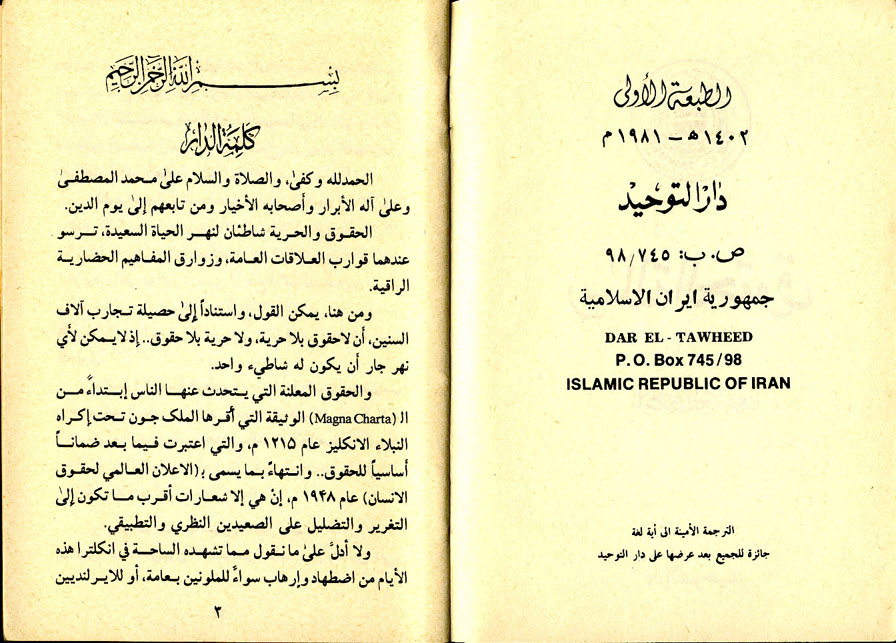 الطبعة الأولى
١٤٠٢ ه‍ – ١٩٨١ م
دار التوحيد
ص. ب: ٧٤٥ / ٩٨
جمهورية ايران الاسلامية
DAR EL - TAWHEED
P. O. Box 745 / 98
ISLAMIC REPUBLIC OF IRAN
الترجمة الأمينة الى أية لغة
جائزة للجميع بعد عرضها على دار التوحيد
بسم الله الرحمن الرحيم
كلمة الدار
الحمدلله وكفىٰ، والصلاة والسلام علىٰ محمد المصطفىٰ
وعلىٰ آله الأبرار وأصحابه الأخيار ومن تابعهم إلىٰ يوم الدين.
الحقوق والحرية شاطئان لنهر الحياة السعيدة، ترسو
عندهما قوارب العلاقات العامة، وزوارق المفاهيم الحضارية
الراقية.
ومن هنا، يمكن القول، واستناداً إلىٰ حصيلة تجارب آلاف
السنين، أن لاحقوق بلا حرية، ولا حرية بلا حقوق.. إذ لايمكن لأي
نهر جار أن يكون له شاطيء واحد.
والحقوق المعلنة التي يتحدث عنها الناس إبتداءً من
الـ (Magna Charta) الوثيقة التي أقرها الملك جون تحت إكراه
النبلاء الانكليز عام ١٢١٥ م، والتي اعتبرت فيما بعد ضماناً
أساسياً للحقوق.. وانتهاءً بما يسمى بـ (الاعلان العالمي لحقوق
الانسان) عام ١٩۴٨ م، إنْ هي إلا شعارات أقرب ما تكون إلىٰ
التغرير والتضليل على الصعيدين النظري والتطبيقي.
ولا أدلَّ علىٰ ما نقول مما تشهده الساحة في انكلترا هذه
الأيام من اضطهاد وإرهاب سواءً للملونين بعامة، أو للايرلنديين
٣